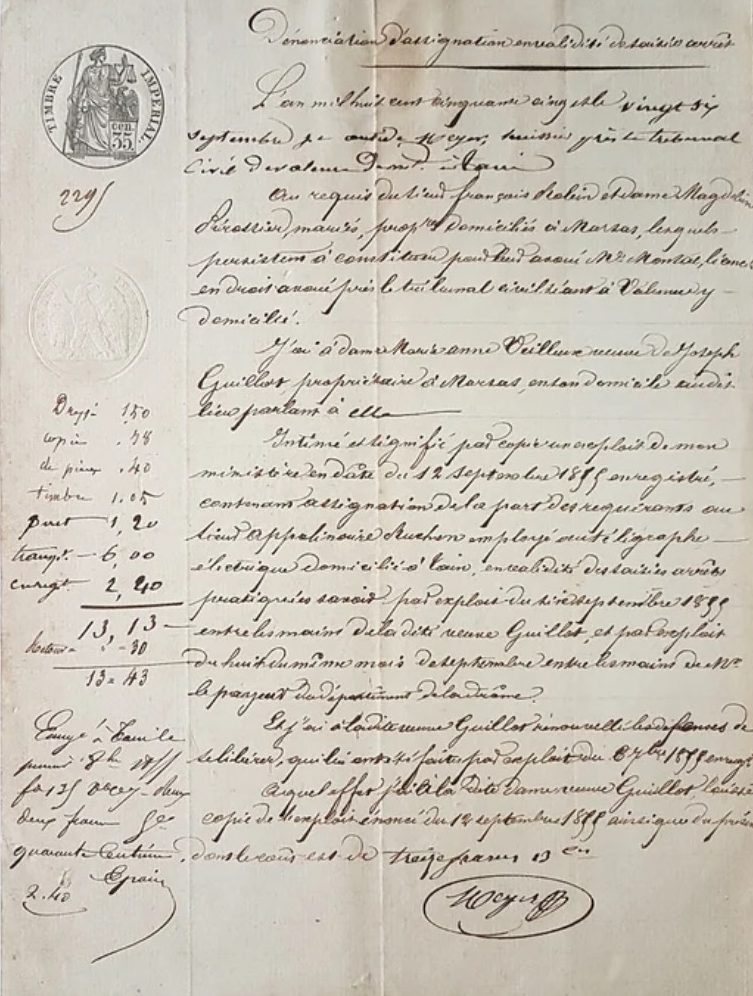 Dénonciation d'assignation en validité de saisie arrêt
TIMBRE IMPERIAL
35 cen.
2295
L'an mil huit cent cinquante cinq et le vingt six
septembre je André Meyer, huissier près le tribunal
Civil de Valence Dem.t à Tain
Au requis du sieur françois Rolin et dame Magdeleine
mariés, prop.res domiciliés à Marsas, lesquels
persistent à constituer pour leur avoué Me Monsat, licencié
en droit avoué près le tribunal civil séant à Valence y
domicilié.
J'ai à dame Marie anne Veilleux veuve de Joseph
Guillot propriétaire à Marsas, en son domicile audit
lieu parlant à elle
Intimé et signifié par copie un exploit de mon
ministère en date du 12 septembre 1855 enregistré,
contenant assignation de la part des requérants au
sieur Appolinaire Ruchon employé au télégraphe
électrique domicilié à Tain, en validité des saisies arrêts
pratiquées savoir par exploit du six septembre 1855
entre les mains de la dite veuve Guillot, et par exploit
du huit du même mois de septembre entre les mains de Mr
le payeur du département de la drôme.
Et j'ai à la dite veuve Guillot renouvellé les défenses de
se libérer, qui lui ont été faites par exploit du 6 7bre 1855 enregt
Auquel effet j'ai à la dite dame veuve Guillot laissé
copie de l'exploit énoncé du 12 septembre 1855 ainsi que du présent
dont le coût est de treize francs 13 cen
Meyer
1,50
copie .78
de pièces .40
timbre 1.05
1,20
transpt. 6,00
enregt. 2,20
13,13
30
13 = 43
Enregé à Tain le
premier 8bre 1855
fo 135
deux francs
quarante centimes.
Epain
2.40